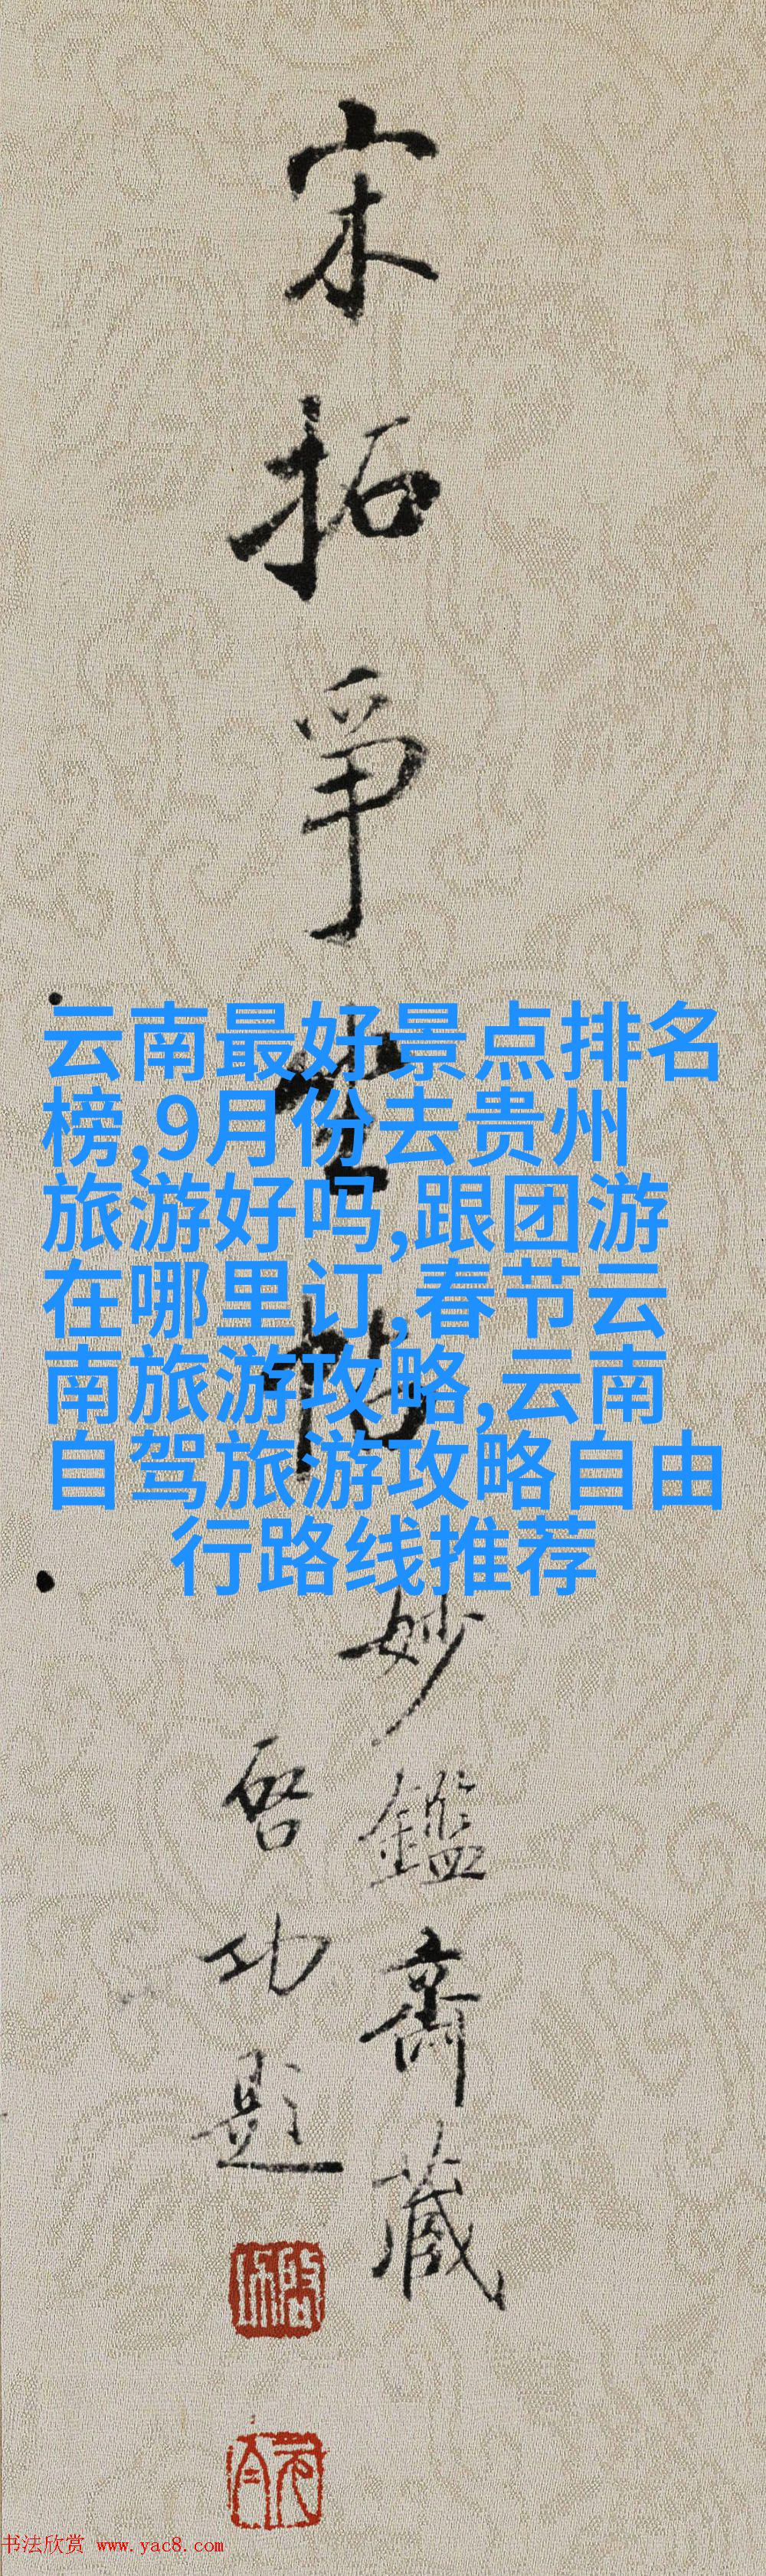 宋拓爭
云南最好景点排名
榜,9月份去贵州
旅游好吗,跟团游
在哪里订,春节云
南旅游攻略,云南
自驾旅游攻略自由
行路线推荐
妙鑑齋藏
启功題
书法欣赏 www.yac8.com